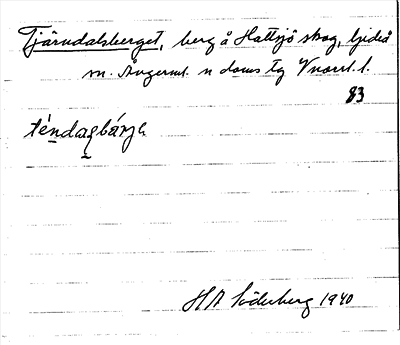 Tjärndalsberget, berg å Hattsjö skog, Gideå
sn. Ångerml. n doms Tg Vnorrl. l.
83
téndaqbárje
HA Söderberg 1940